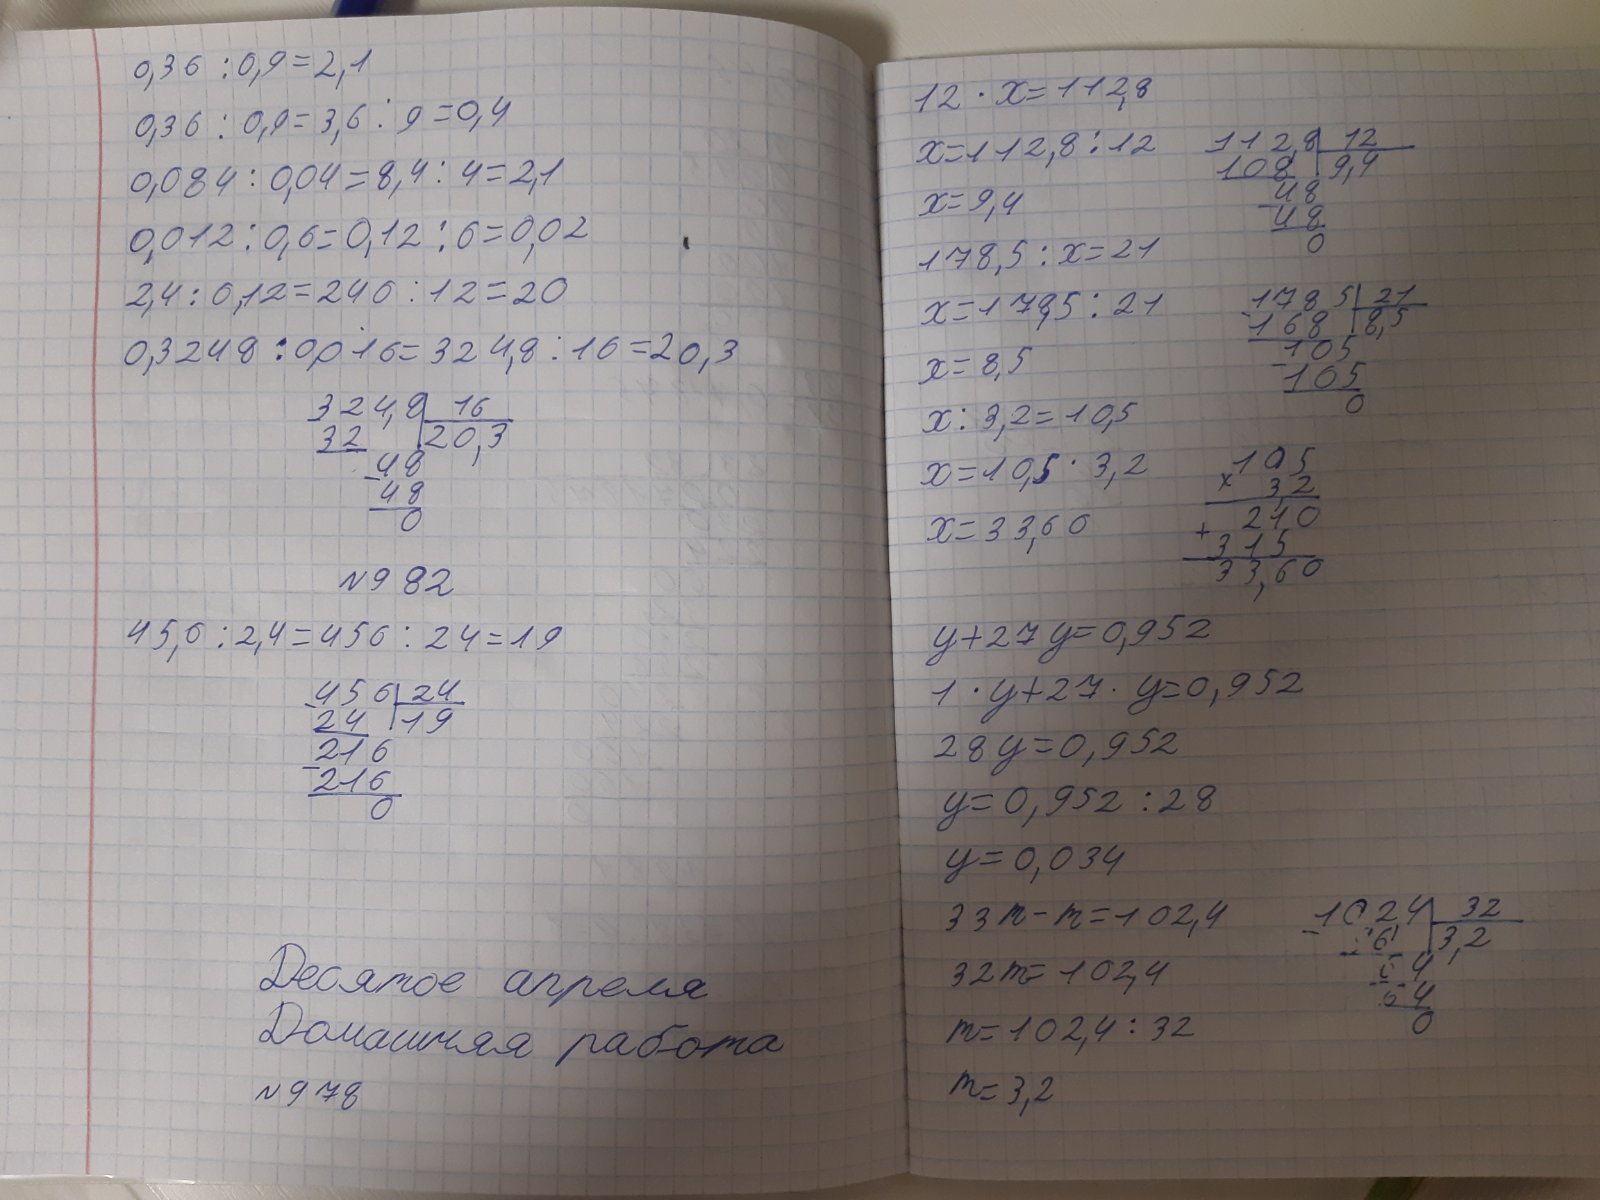 0,36 : 0,9 = 2,1
0,36 : 0,9 = 3,6 : 9 = 0,4
0,084 : 0,04 = 8,4 : 4 = 2,1
0,012 : 0,6 = 0,12 : 6 = 0,02
2,4 : 0,12 = 240 : 12 = 20
0,3248 : 0,016 = 324,8 : 16 = 20,3
324,8 | 16
32 | 20,3
- 48
48
0
№982
45,6 : 2,4 = 456 : 24 = 19
- 456 | 24
24 | 19
- 216
216
0
Десятое апреля
Домашняя работа
№978
12 · x = 112,8
x = 112,8 : 12
x = 9,4
112,8 | 12
108 | 9,4
- 48
48
0
178,5 : x = 21
x = 178,5 : 21
x = 8,5
- 178 5 | 21
168 | 8,5
- 105
105
0
x : 3,2 = 10,5
x = 10,5 · 3,2
x = 33,60
10,5
x 3,2
+ 210
315
33,60
y + 27y = 0,952
1 · y + 27 · y = 0,952
28y = 0,952
y = 0,952 : 28
y = 0,034
33m - m = 102,4
32m = 102,4
m = 102,4 : 32
m = 3,2
- 1024 | 32
96 | 3,2
- 64
64
0